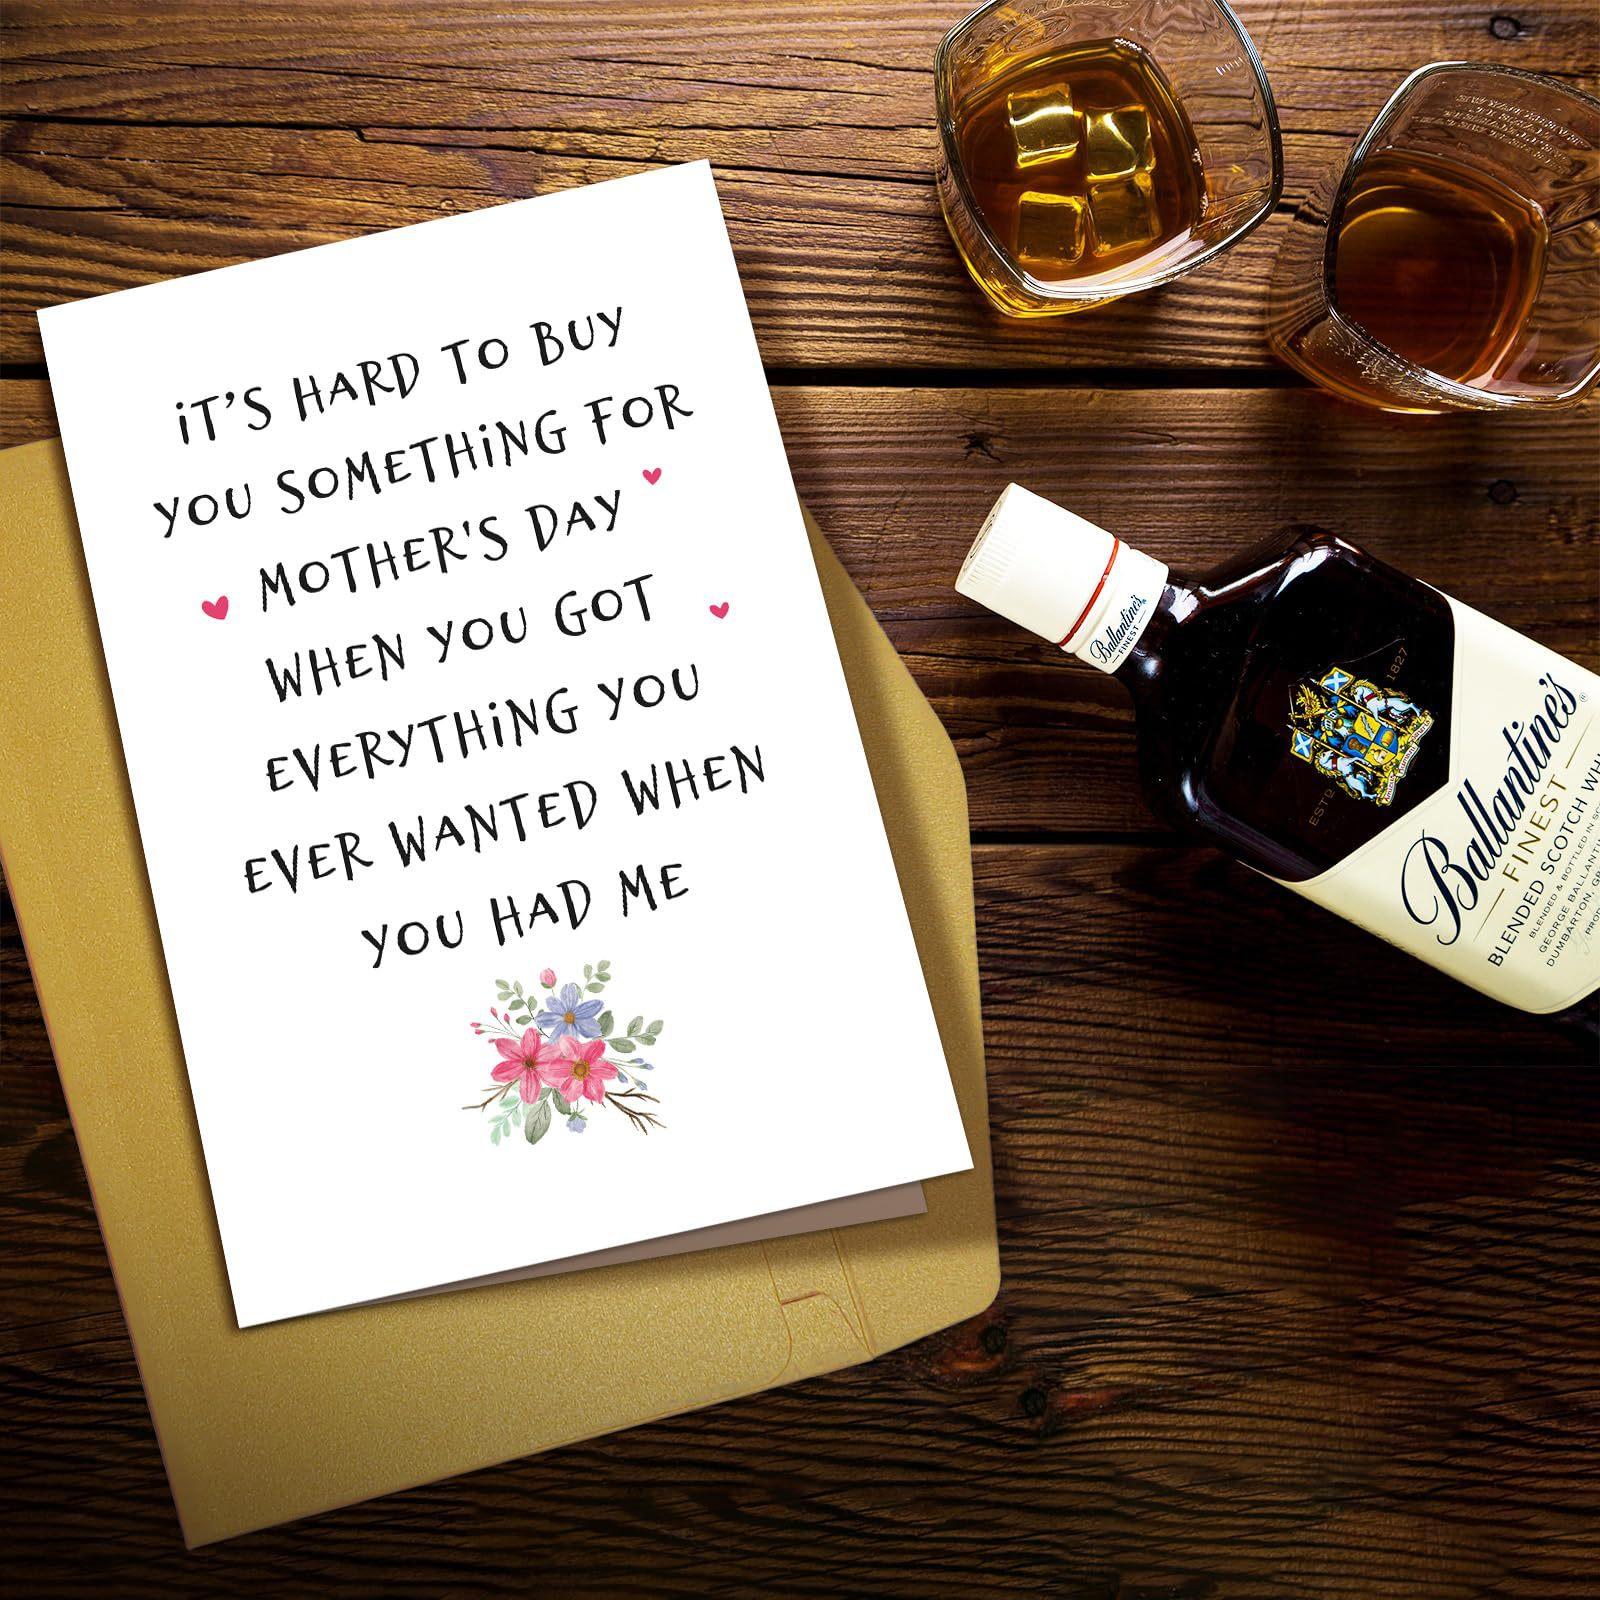 iT'S HARD TO BUY
YOU SOMETHiNG FOR
MOTHER'S DAY
WHEN YOU GOT
EVERYTHiNG YOU
EVER WANTED WHEN
YOU HAD ME
Ballantine's
FINEST
ESTD 1827
Ballantine's
FINEST
BLENDED SCOTCH
BLENDED & BOTTLED IN
GEORGE BALLANTINE
DUMBARTON,